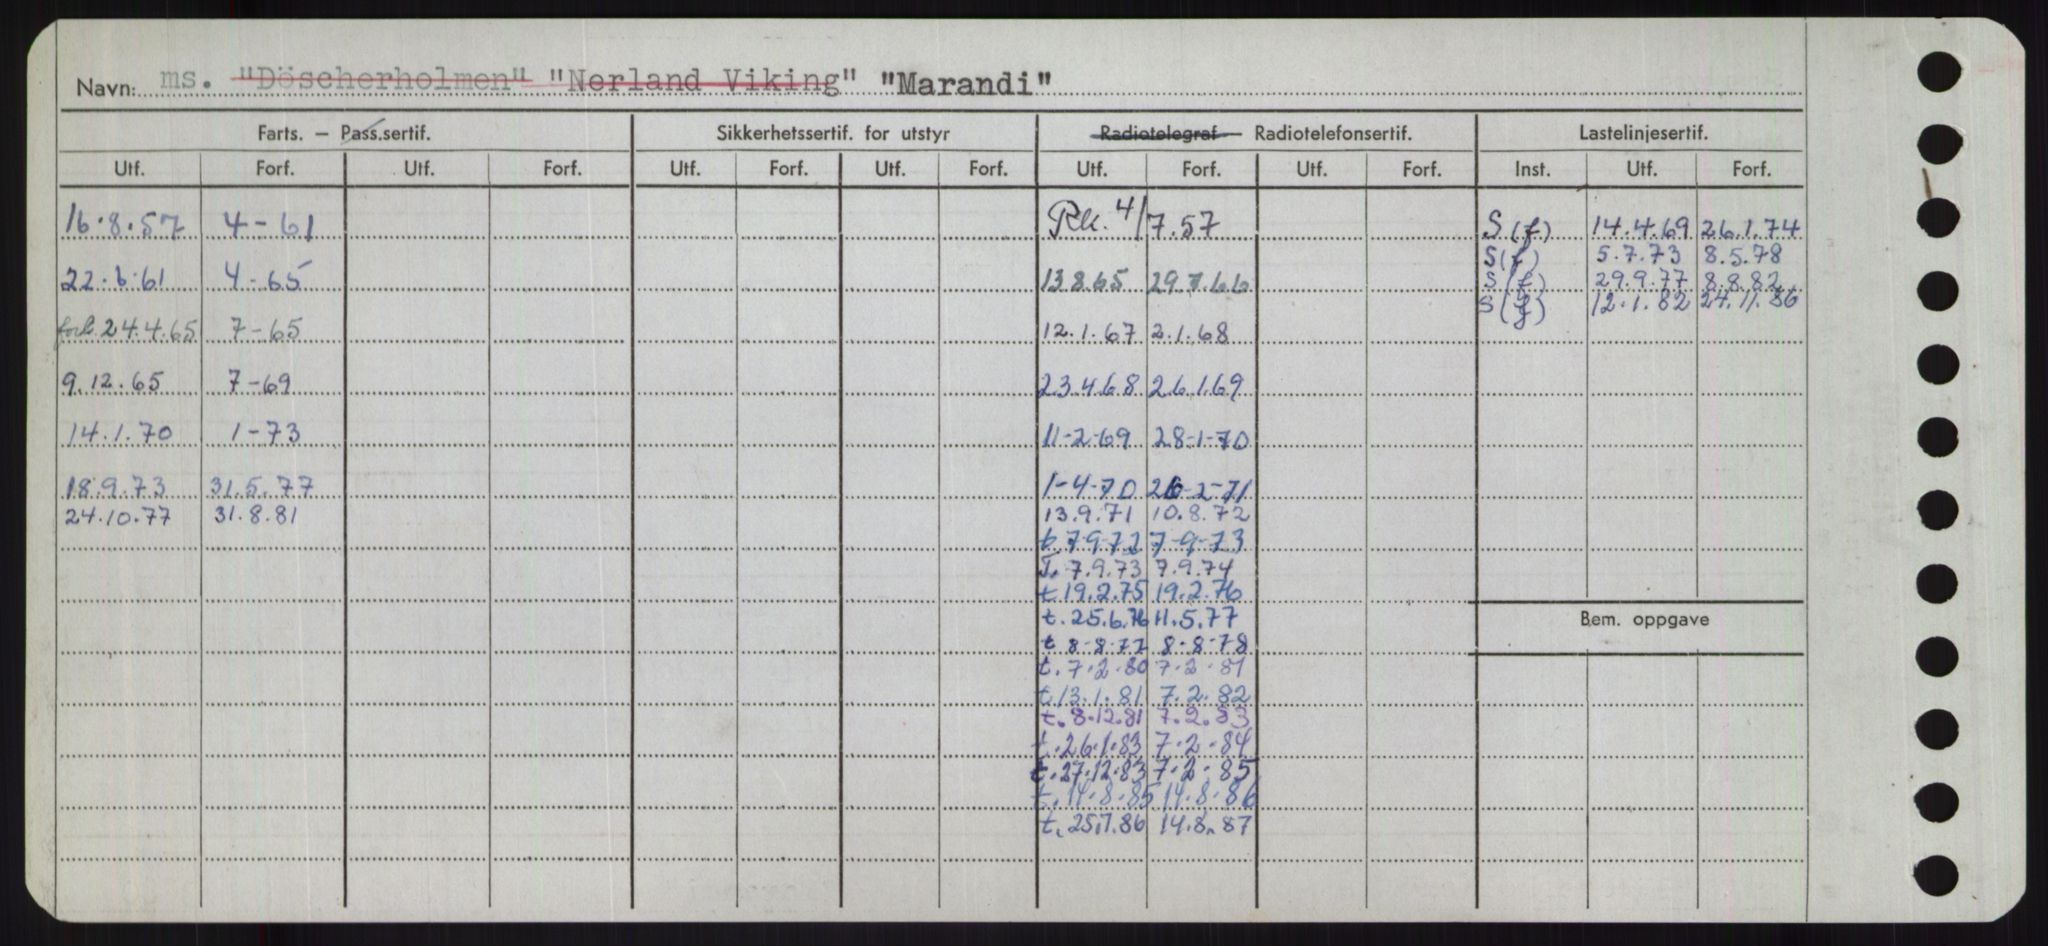 Navn: ms. "Döscherholmen" "Nerland Viking" "Marandi"
Farts. — Pass.sertif. Sikkerhetssertif. for utstyr Radiotelegraf — Radiotelefonsertif. Lastelinjesertif.
Utf. Forf. Utf. Forf. Utf. Forf. Utf. Forf. Utf. Forf. Utf. Forf. Inst. Utf. Forf.
16.8.57 4-61 4/7.57 S(f) 14.4.69 26.1.74
S(f) 5.7.73 8.5.78
22.6.61 4-65 13.8.65 29.7.66 S(f) 29.9.77 8.8.82
S(f) 12.1.82 24.11.86
24.4.65 7-65 12.1.67 2.1.68
9.12.65 7-69 23.4.68 26.1.69
14.1.70 1-73 11-2-69 28-1-70
18.9.73 31.5.77 1-4-70 26-2-71
24.10.77 31.8.81 13.9.71 10.8.72
t.7-9-72 7-9-73
T. 7.9.73 7.9.74
t.19.2.75 19.2.76
t.25.6.76 11.5.77
Bem. oppgave
t 8-8-77 8-8-78
t.7.2.80 7.2.81
t.13.1.81 7.2.82
t.8.12.81 7.2.83
t.26.1.83 7.2.84
t.27.12.83 7.2.85
t.14.8.85 14.8.86
t.25.7.86 14.8.87